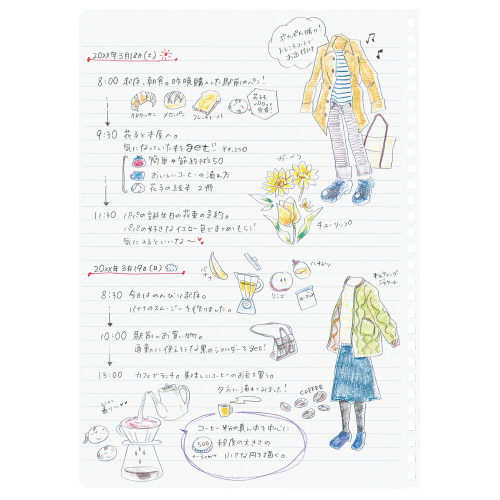 20XX年3月18日(土)
ポカポカ陽気!
トレンチコートで
お出付け
8:00 起床、朝食。昨晩購入した駅前のパン!
クロワッサン メロンパン フレンチトースト
花子も
9:30 花子と本屋へ。
気になっていた本をget!! ¥4,290
簡単♡節約術50
おいしいコーヒーの淹れ方
花子の絵本 2冊
ガーベラ
チューリップ
11:30 パパの誕生日の花束の予約。
パパの好きなイエロー色でまとめてもらう!
気に入るといいな〜♥
20XX年3月19日(日)
バナナ
ハチミツ
リンゴ
ヨーグルト
キルティング
ジャケット
8:30 今日はのんびり起床。
バナナのスムージーを作りました。
10:00 駅前へお買い物。
通勤に使えそうな黒のショルダーをget!
13:00 カフェでランチ。美味しいコーヒーのお豆を買う。
夕方に淹れてみました!
COFFEE
いい
香り〜♥
コーヒー粉の真ん中を中心に
500 程度の大きさの
いっさな円を描く。